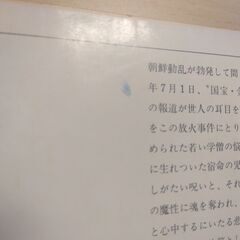 朝鮮動乱が勃発して間
年7月1日、“国宝・金
の報道が世人の耳目を
をこの放火事件にとり
められた若い学僧の悩
に生れついた宿命の
しがたい呪いと、それ
の魔性に魂を奪われ、
と心中するにいたる悲